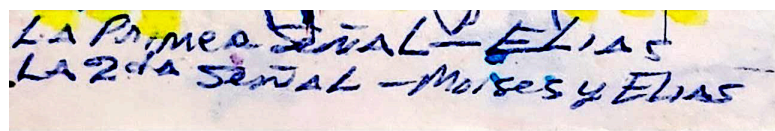 LA Primera Señal – ELIAS
LA 2da Señal – Moises y Elias